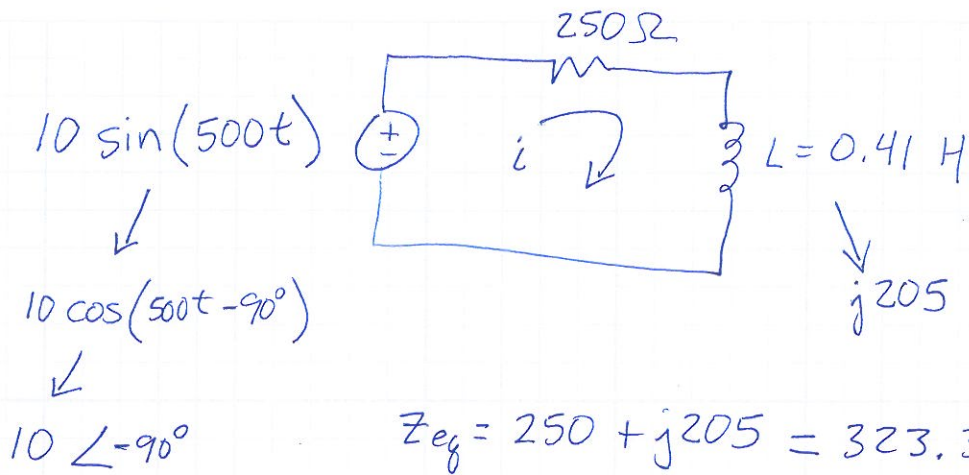 250Ω
10 sin(500t)
+
-
i
L = 0.41 H
10 cos(500t-90°)
j205
10 ∠-90°
Zeq = 250 + j205 = 323.3